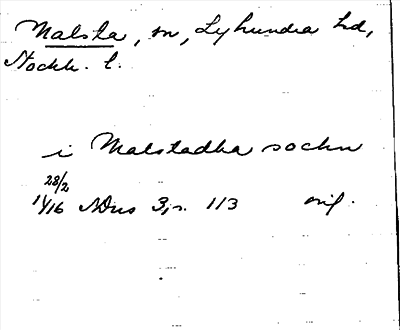 Malsta, sn, Lyhundra hd,
Stockh. l.
i Malstadha sochn
23/2
1416 SDns 3, s. 113 orig.